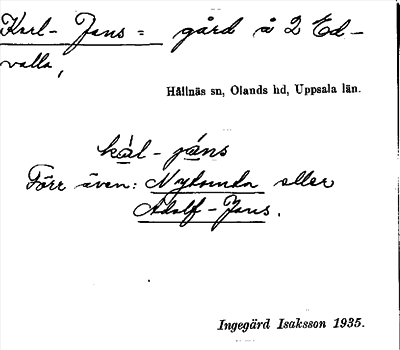 Karl-Jans = gård å 2 Ed-
valla,
Hållnäs sn, Olands hd, Uppsala län.
kàl-jáns
Förr även: Nylunda eller
Adolf-Jans.
Ingegärd Isaksson 1935.